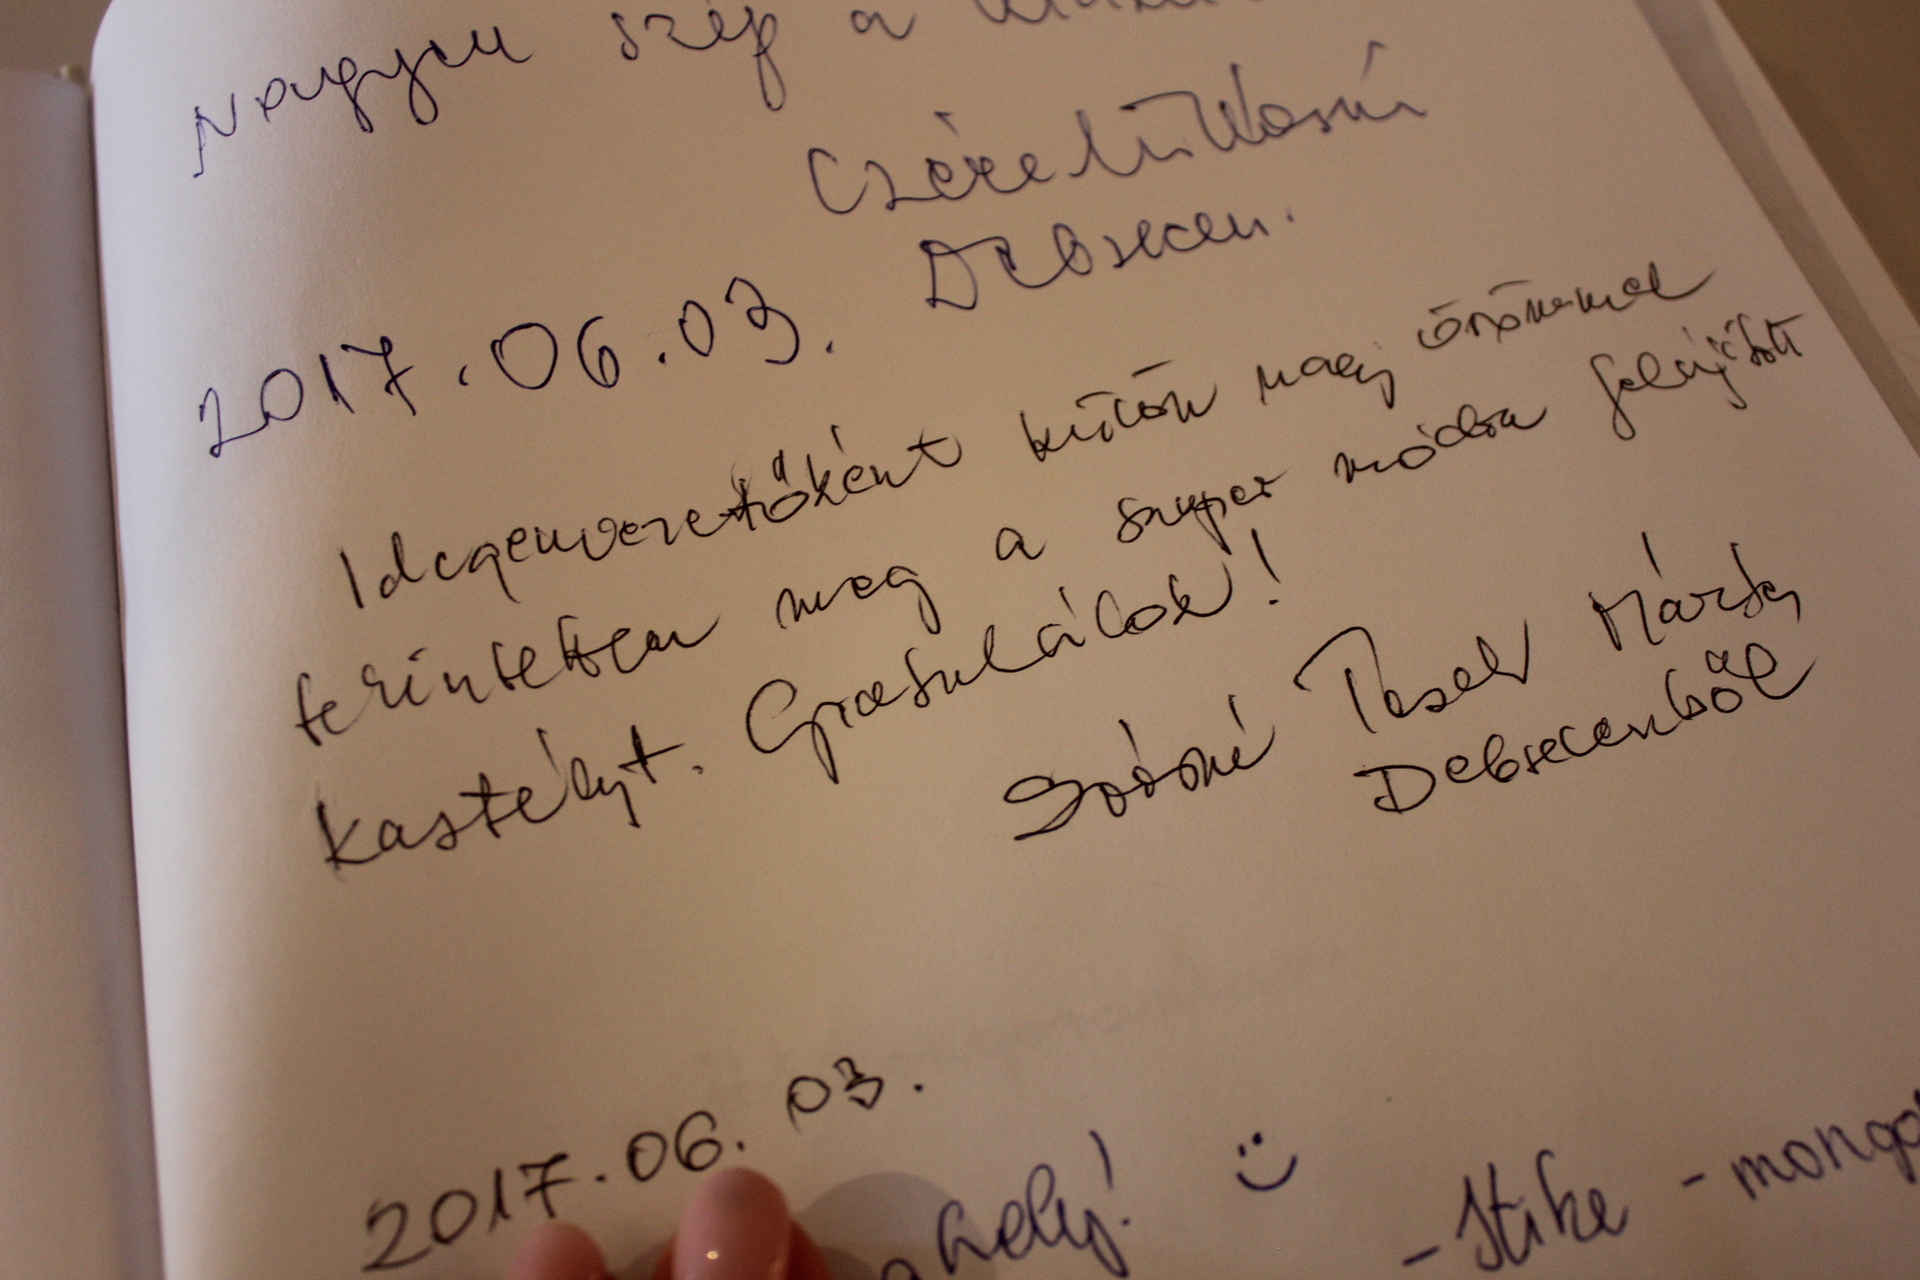 Nagyon szép a
Debrecen.
2017.06.03.
Idegenvezetőként külön nagy örömmel
tekintettem meg a szuper módon felújított
kastélyt. Gratulálok!
Márta
Debrecenből
2017.06.03.
hely! :)
- Stike - mongo